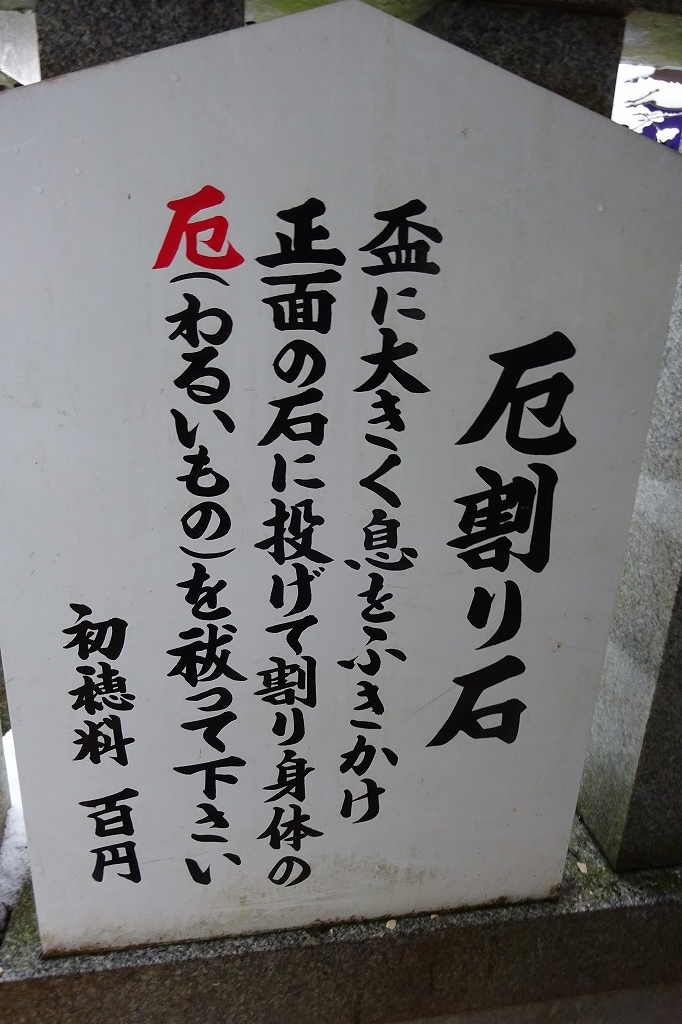 厄割り石
盃に大きく息をふきかけ
正面の石に投げて割り身体の
厄(わるいもの)を祓って下さい
初穂料 百円